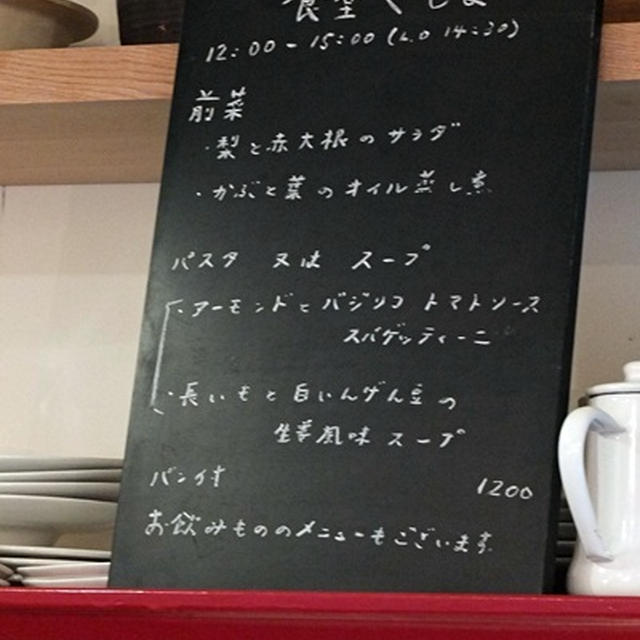 食堂くしま
12:00-15:00 (L.O 14:30)
前菜
・梨と赤大根のサラダ
・かぶと葉のオイル蒸し煮
パスタ 又は スープ
・アーモンドとバジリコ トマトソース
スパゲッティーニ
・長いもと白いんげん豆の
生姜風味 スープ
パン付 1200
お飲みもののメニューもございます